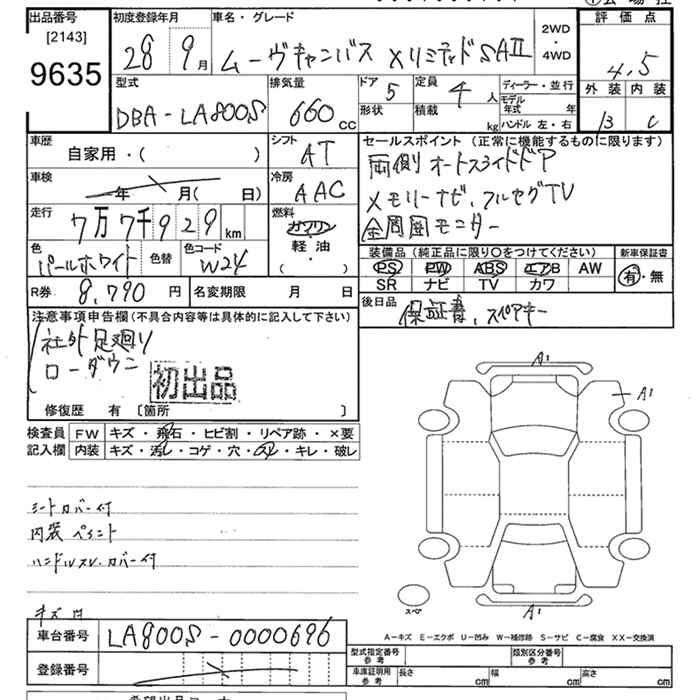 出品番号
[2143]
9635
初度登録年月
28 9月
車名・グレード
ムーヴキャンバス XリミテッドSAⅡ
2WD
4WD
評価点
4.5
外装 内装
B C
型式
DBA-LA800S
排気量
660cc
ドア
5
形状
定員
4人
積載
kg
ディーラー・並行
モデル年式 年
ハンドル 左・右
車歴
自家用・( )
シフト
AT
車検
年 月( 日)
冷房
AAC
走行
7万7千929km
燃料
ガソリン
軽油
( ・ )
色
パールホワイト
色替
色コード
W24
R券 8,790円
名変期限 月 日
セールスポイント(正常に機能するものに限ります)
両側オートスライドドア
メモリーナビ、フルセグTV
全周囲モニター
装備品(純正品に限り○をつけてください)
新車保証書
PS PW ABS エアB AW
SR ナビ TV カワ
有・無
後日品
保証書、スペアキー
注意事項申告欄(不具合内容等は具体的に記入して下さい)
社外足廻り
ローダウン
初出品
修復歴 有 [箇所 ]
検査員記入欄
FW キズ・飛石・ヒビ割・リペア跡・×要
内装 キズ・汚レ・コゲ・穴・スレ・キレ・破レ
シートカバー付
内装ペイント
ハンドルスレ、カバー付
キズ
A1
A1
A1
スペア
A-キズ E-エクボ U-凹み W-補修跡 S-サビ C-腐食 XX-交換済
車台番号
LA800S-0000696
登録番号
型式指定番号
参考
類別区分番号
参考
車庫証明用
参考
長さ cm
幅 cm
高さ cm